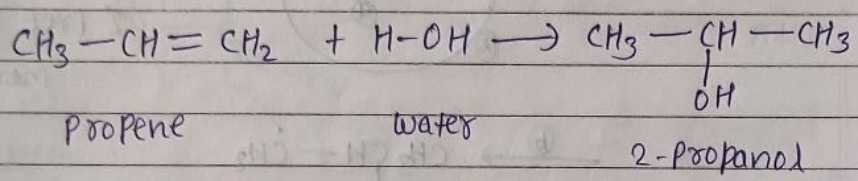 CH₃ — CH = CH₂ + H–OH ⟶ CH₃ — CH — CH₃
|
OH
propene water
2-propanol